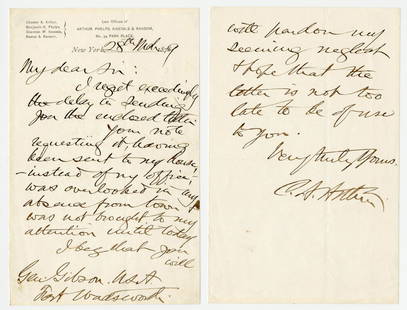 Chester A. Arthur,
Benjamin K. Phelps,
Sherman W. Knevals,
Rastus S. Ransom.
Law Offices of
ARTHUR, PHELPS, KNEVALS & RANSOM,
No. 54 PARK PLACE,
New York, 28th Mch 1879
My dear Sir:
I regret exceedingly
the delay in sending
you the enclosed letter
Your note
requesting it, having
been sent to my house,
instead of my office,
was overlooked in my
absence from town
was not brought to my
attention until today
I beg that you
will
Gen Gibson. U.S.A
Fort Wadsworth.
with pardon my
seeming neglect
& hope that the
letter is not too
late to be of use
to you.
Very truly Yours.
C. A. Arthur